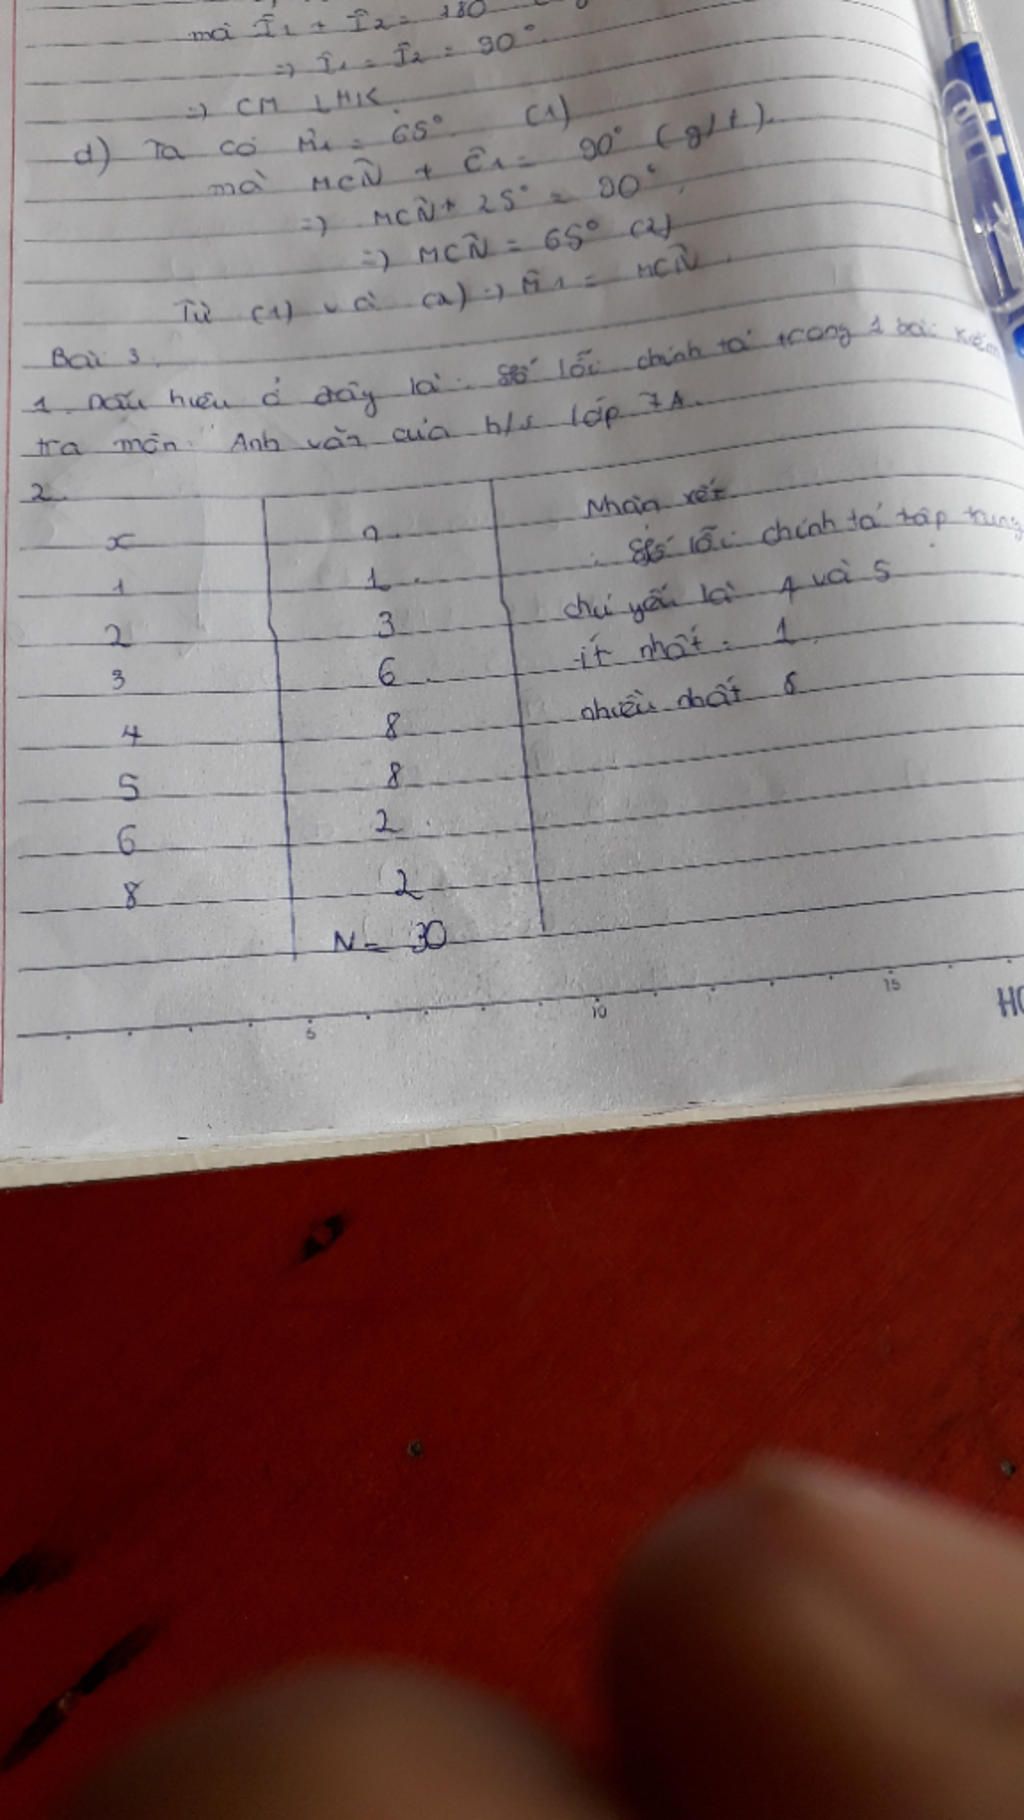 mà Î₁ + Î₂ = 180
=> Î₁ = Î₂ = 90°.
=> CM ⊥ HK
d) Ta có M̂₁ = 65° (1)
mà MCN̂ + Ĉ₁ = 90° (g/t).
=> MCN̂ + 25° = 90°.
=> MCN̂ = 65° (2)
Từ (1) và (2) => M̂₁ = MCN̂.
Bài 3.
1. Dấu hiệu ở đây là: Số lỗi chính tả trong 1 bài kiểm
tra môn Anh văn của h/s lớp 7A.
2.
x n Nhận xét
1 1 Số lỗi chính tả tập trung
2 3 chủ yếu là 4 và 5
3 6 ít nhất: 1
4 8 nhiều nhất 8
5 8
6 2
8 2
N = 30
5 10 15
HO